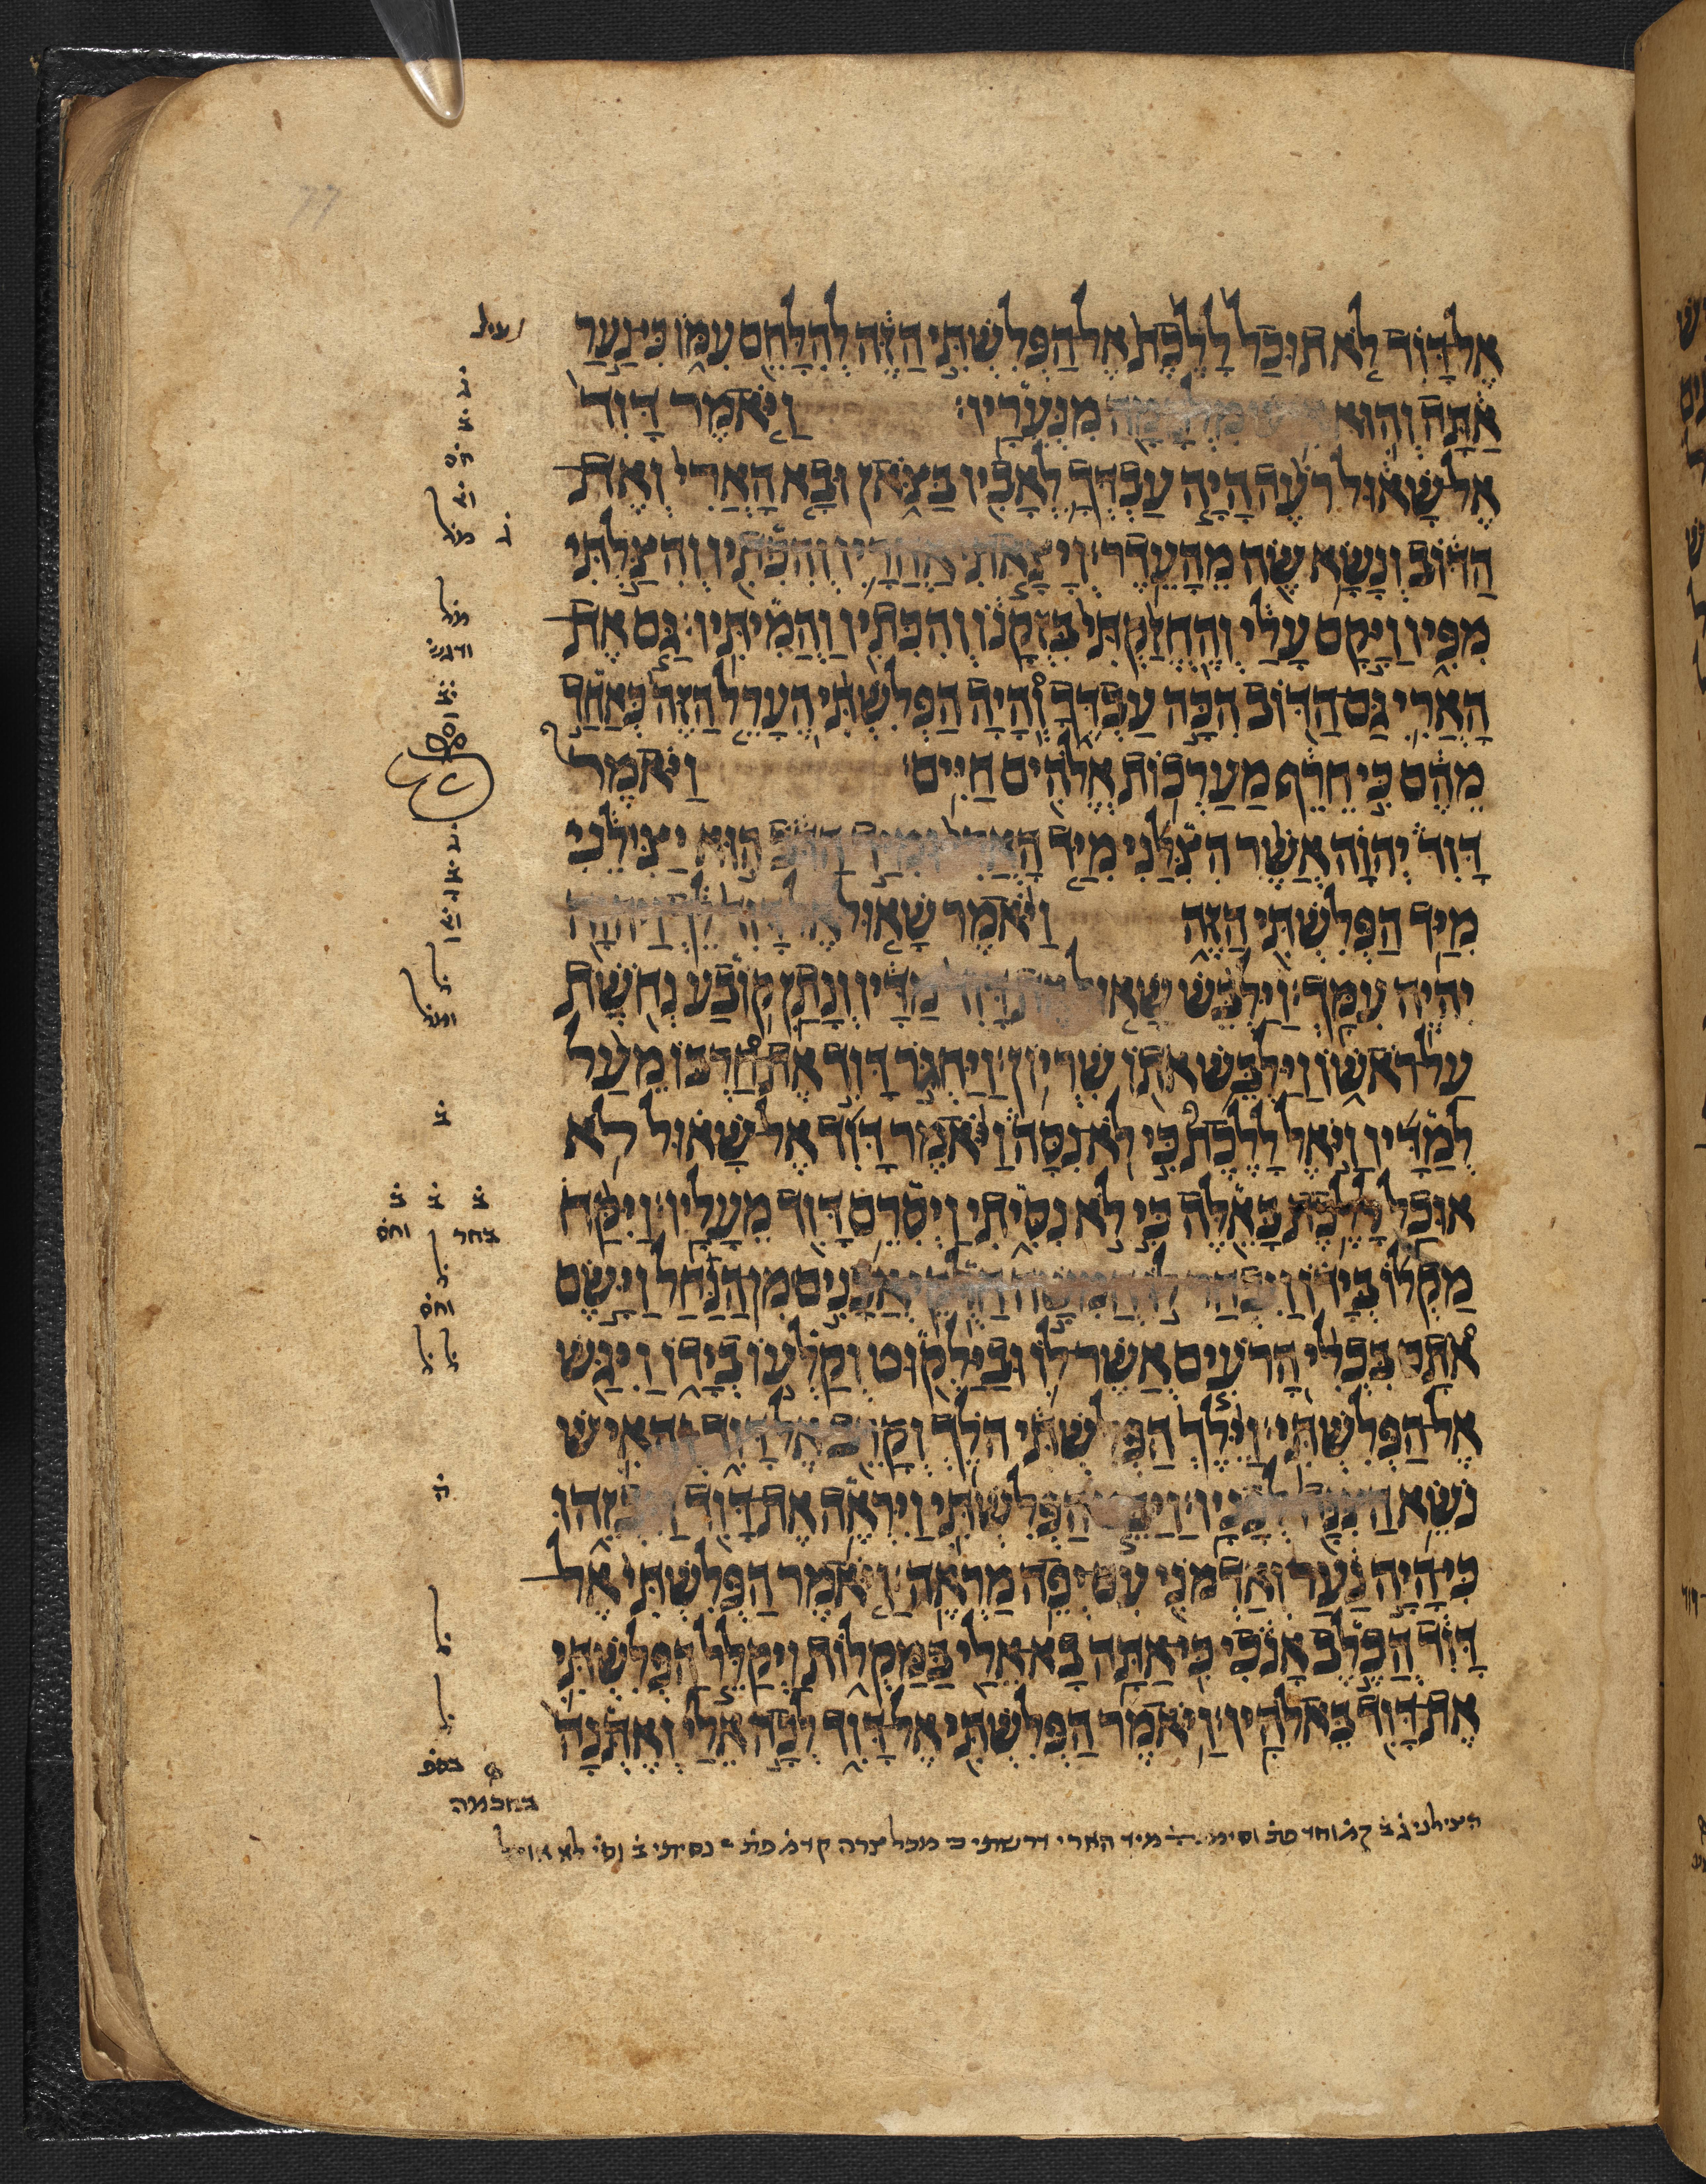 אֶל דָּוִד לֹא תוּכַל לָלֶכֶת אֶל הַפְּלִשְׁתִּי הַזֶּה לְהִלָּחֵם עִמּוֹ כִּי נַעַר
אַתָּה וְהוּא מִלְחָמָה מִנְּעֻרָיו׃ וַיֹּאמֶר דָּוִד
אֶל שָׁאוּל רֹעֶה הָיָה עַבְדְּךָ לְאָבִיו בַּצֹּאן וּבָא הָאֲרִי וְאֶת
הַדּוֹב וְנָשָׂא שֶׂה מֵהָעֵדֶר׃ וְיָצָאתִי אַחֲרָיו וְהִכִּתִיו וְהִצַּלְתִּי
מִפִּיו וַיָּקָם עָלַי וְהֶחֱזַקְתִּי בִּזְקָנוֹ וְהִכִּתִיו וַהֲמִיתִּיו׃ גַּם אֶת
הָאֲרִי גַּם הַדּוֹב הִכָּה עַבְדֶּךָ וְהָיָה הַפְּלִשְׁתִּי הֶעָרֵל הַזֶּה כְּאַחַד
מֵהֶם כִּי חֵרֵף מַעַרְכוֹת אֱלֹהִים חַיִּים׃ וַיֹּאמֶר
דָּוִד יְהוָה אֲשֶׁר הִצִּלַנִי מִיַּד הָאֲרִי וּמִיַּד הַדֹּב הוּא יַצִּילֵנִי
מִיַּד הַפְּלִשְׁתִּי הַזֶּה וַיֹּאמֶר שָׁאוּל אֶל דָּוִד לֵךְ וַיהוָה
יִהְיֶה עִמָּךְ׃ וַיַּלְבֵּשׁ שָׁאוּל אֶת דָּוִד מַדָּיו וְנָתַן קוֹבַע נְחֹשֶׁת
עַל רֹאשׁוֹ וַיַּלְבֵּשׁ אֹתוֹ שִׁרְיוֹן׃ וַיַּחְגֹּר דָּוִד אֶת חַרְבּוֹ מֵעַל
לְמַדָּיו וַיֹּאֶל לָלֶכֶת כִּי לֹא נִסָּה וַיֹּאמֶר דָּוִד אֶל שָׁאוּל לֹא
אוּכַל לָלֶכֶת בָּאֵלֶּה כִּי לֹא נִסִּיתִי וַיְסִרֵם דָּוִד מֵעָלָיו׃ וַיִּקַּח
מַקְלוֹ בְּיָדוֹ וַיִּבְחַר לוֹ חֲמִשָּׁה חַלֻּקֵי אֲבָנִים מִן הַנַּחַל וַיָּשֶׂם
אֹתָם בִּכְלִי הָרֹעִים אֲשֶׁר לוֹ וּבַיַּלְקוּט וְקַלְעוֹ בְיָדוֹ וַיִּגַּשׁ
אֶל הַפְּלִשְׁתִּי׃ וַיֵּלֶךְ הַפְּלִשְׁתִּי הֹלֵךְ וְקָרֵב אֶל דָּוִד וְהָאִישׁ
נֹשֵׂא הַצִּנָּה לְפָנָיו׃ וַיַּבֵּט הַפְּלִשְׁתִּי וַיִּרְאֶה אֶת דָּוִד וַיִּבְזֵהוּ
כִּי הָיָה נַעַר וְאַדְמֹנִי עִם יְפֵה מַרְאֶה׃ וַיֹּאמֶר הַפְּלִשְׁתִּי אֶל
דָּוִד הֲכֶלֶב אָנֹכִי כִּי אַתָּה בָא אֵלַי בַּמַּקְלוֹת וַיְקַלֵּל הַפְּלִשְׁתִּי
אֶת דָּוִד בֵּאלֹהָיו׃ וַיֹּאמֶר הַפְּלִשְׁתִּי אֶל דָּוִד לְכָה אֵלַי וְאֶתְּנָה
בחכמה
הצילני מיד הארי דרשתי מכל צרה נסיתי לא